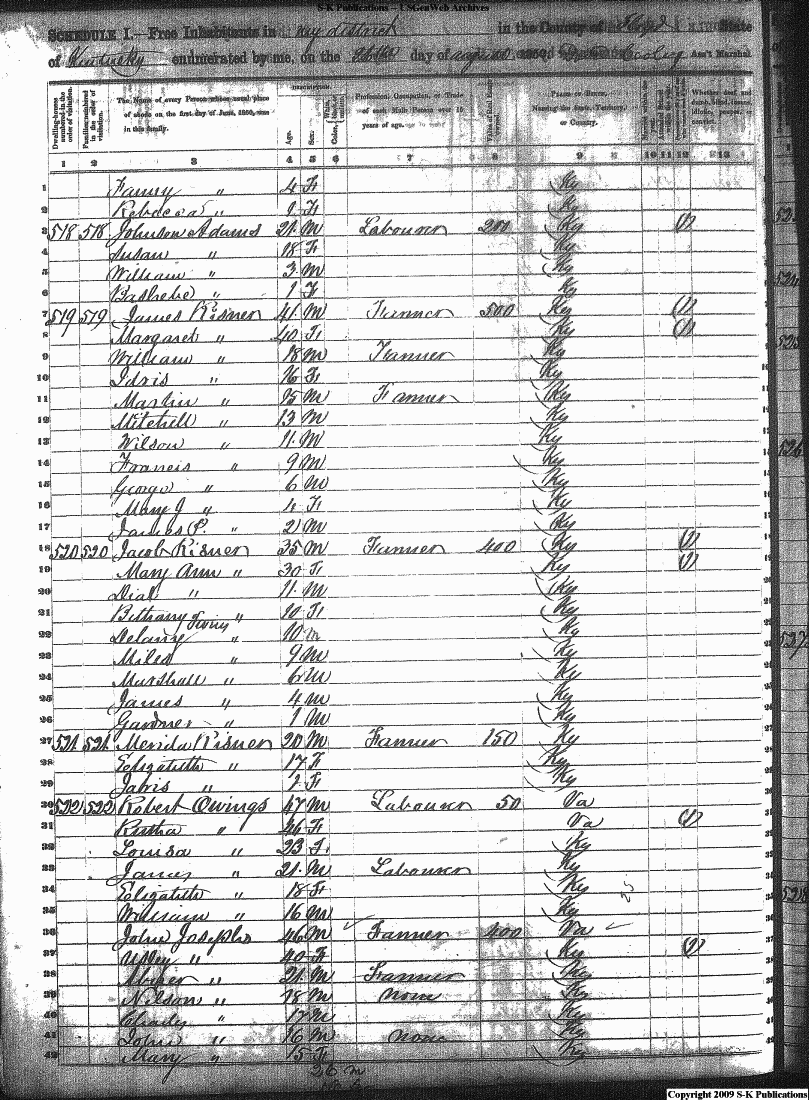 S-K Publications -- USGenWeb Archives
SCHEDULE I.—Free Inhabitants in my district in the County of Floyd State
of Kentucky enumerated by me, on the day of august 1850. Cooley Ass't Marshal
Dwelling-houses numbered in the order of visitation. Families numbered in the order of visitation. The Name of every Person whose usual place of abode on the first day of June, 1850, was in this family. DESCRIPTION. Age. Sex. Color Profession, Occupation, or Trade of each Male Person over 15 years of age. Value of Real Estate PLACE OF BIRTH, Naming the State, Territory, or Country. Whether deaf and dumb, blind, insane, idiotic, pauper, or
1 2 3 4 5 6 7 8 9 10 11 12 13
1 Fanny " 4 F Ky
2 Rebecca " 1 F Ky
3 518 518 Johnson Adams 21 M Labourer 200 Ky (1)
4 Susan " 18 F Ky
5 William " 3 M Ky
6 Bashebe " 1 F Ky
7 519 519 James Risner 41 M Farmer 500 Ky (1)
8 Margaret " 40 F Ky (1)
9 William " 18 M Farmer Ky
10 Idris " 16 F Ky
11 Martin " 15 M Farmer Ky
12 Mitchell " 13 M Ky
13 Wilson " 11 M Ky
14 Francis " 9 M Ky
15 George " 6 M Ky
16 Mary J " 4 F Ky
17 James P. " 2 M Ky
18 520 520 Jacob Risner 35 M Farmer 400 Ky (1)
19 Mary Ann " 30 F Ky (1)
20 Dial " 11 M Ky
21 Bethany " 10 F Ky
22 Delany " 10 M Ky
23 Miles " 9 M Ky
24 Marshall " 6 M Ky
25 James " 4 M Ky
26 Gardner " 1 M Ky
27 521 521 Merida Risner 20 M Farmer 150 Ky
28 Elizabeth " 17 F Ky
29 " F Ky
30 522 522 Robert Owings 47 M Labourer 50 Va
31 " 46 F Va (1)
32 Louisa " 23 F Ky
33 James " 21 M Labourer Ky
34 Elizabeth " 18 F Ky
35 William " 16 M Ky
36 John Josephs 46 M Farmer 400 Va
37 " 40 F Ky (1)
38 " 21 M Farmer Ky
39 Nilson " 18 M none Ky
40 " 17 M Ky
41 John " 16 M none Ky
42 Mary " 15 F Ky
26 m
Copyright 2009 S-K Publications